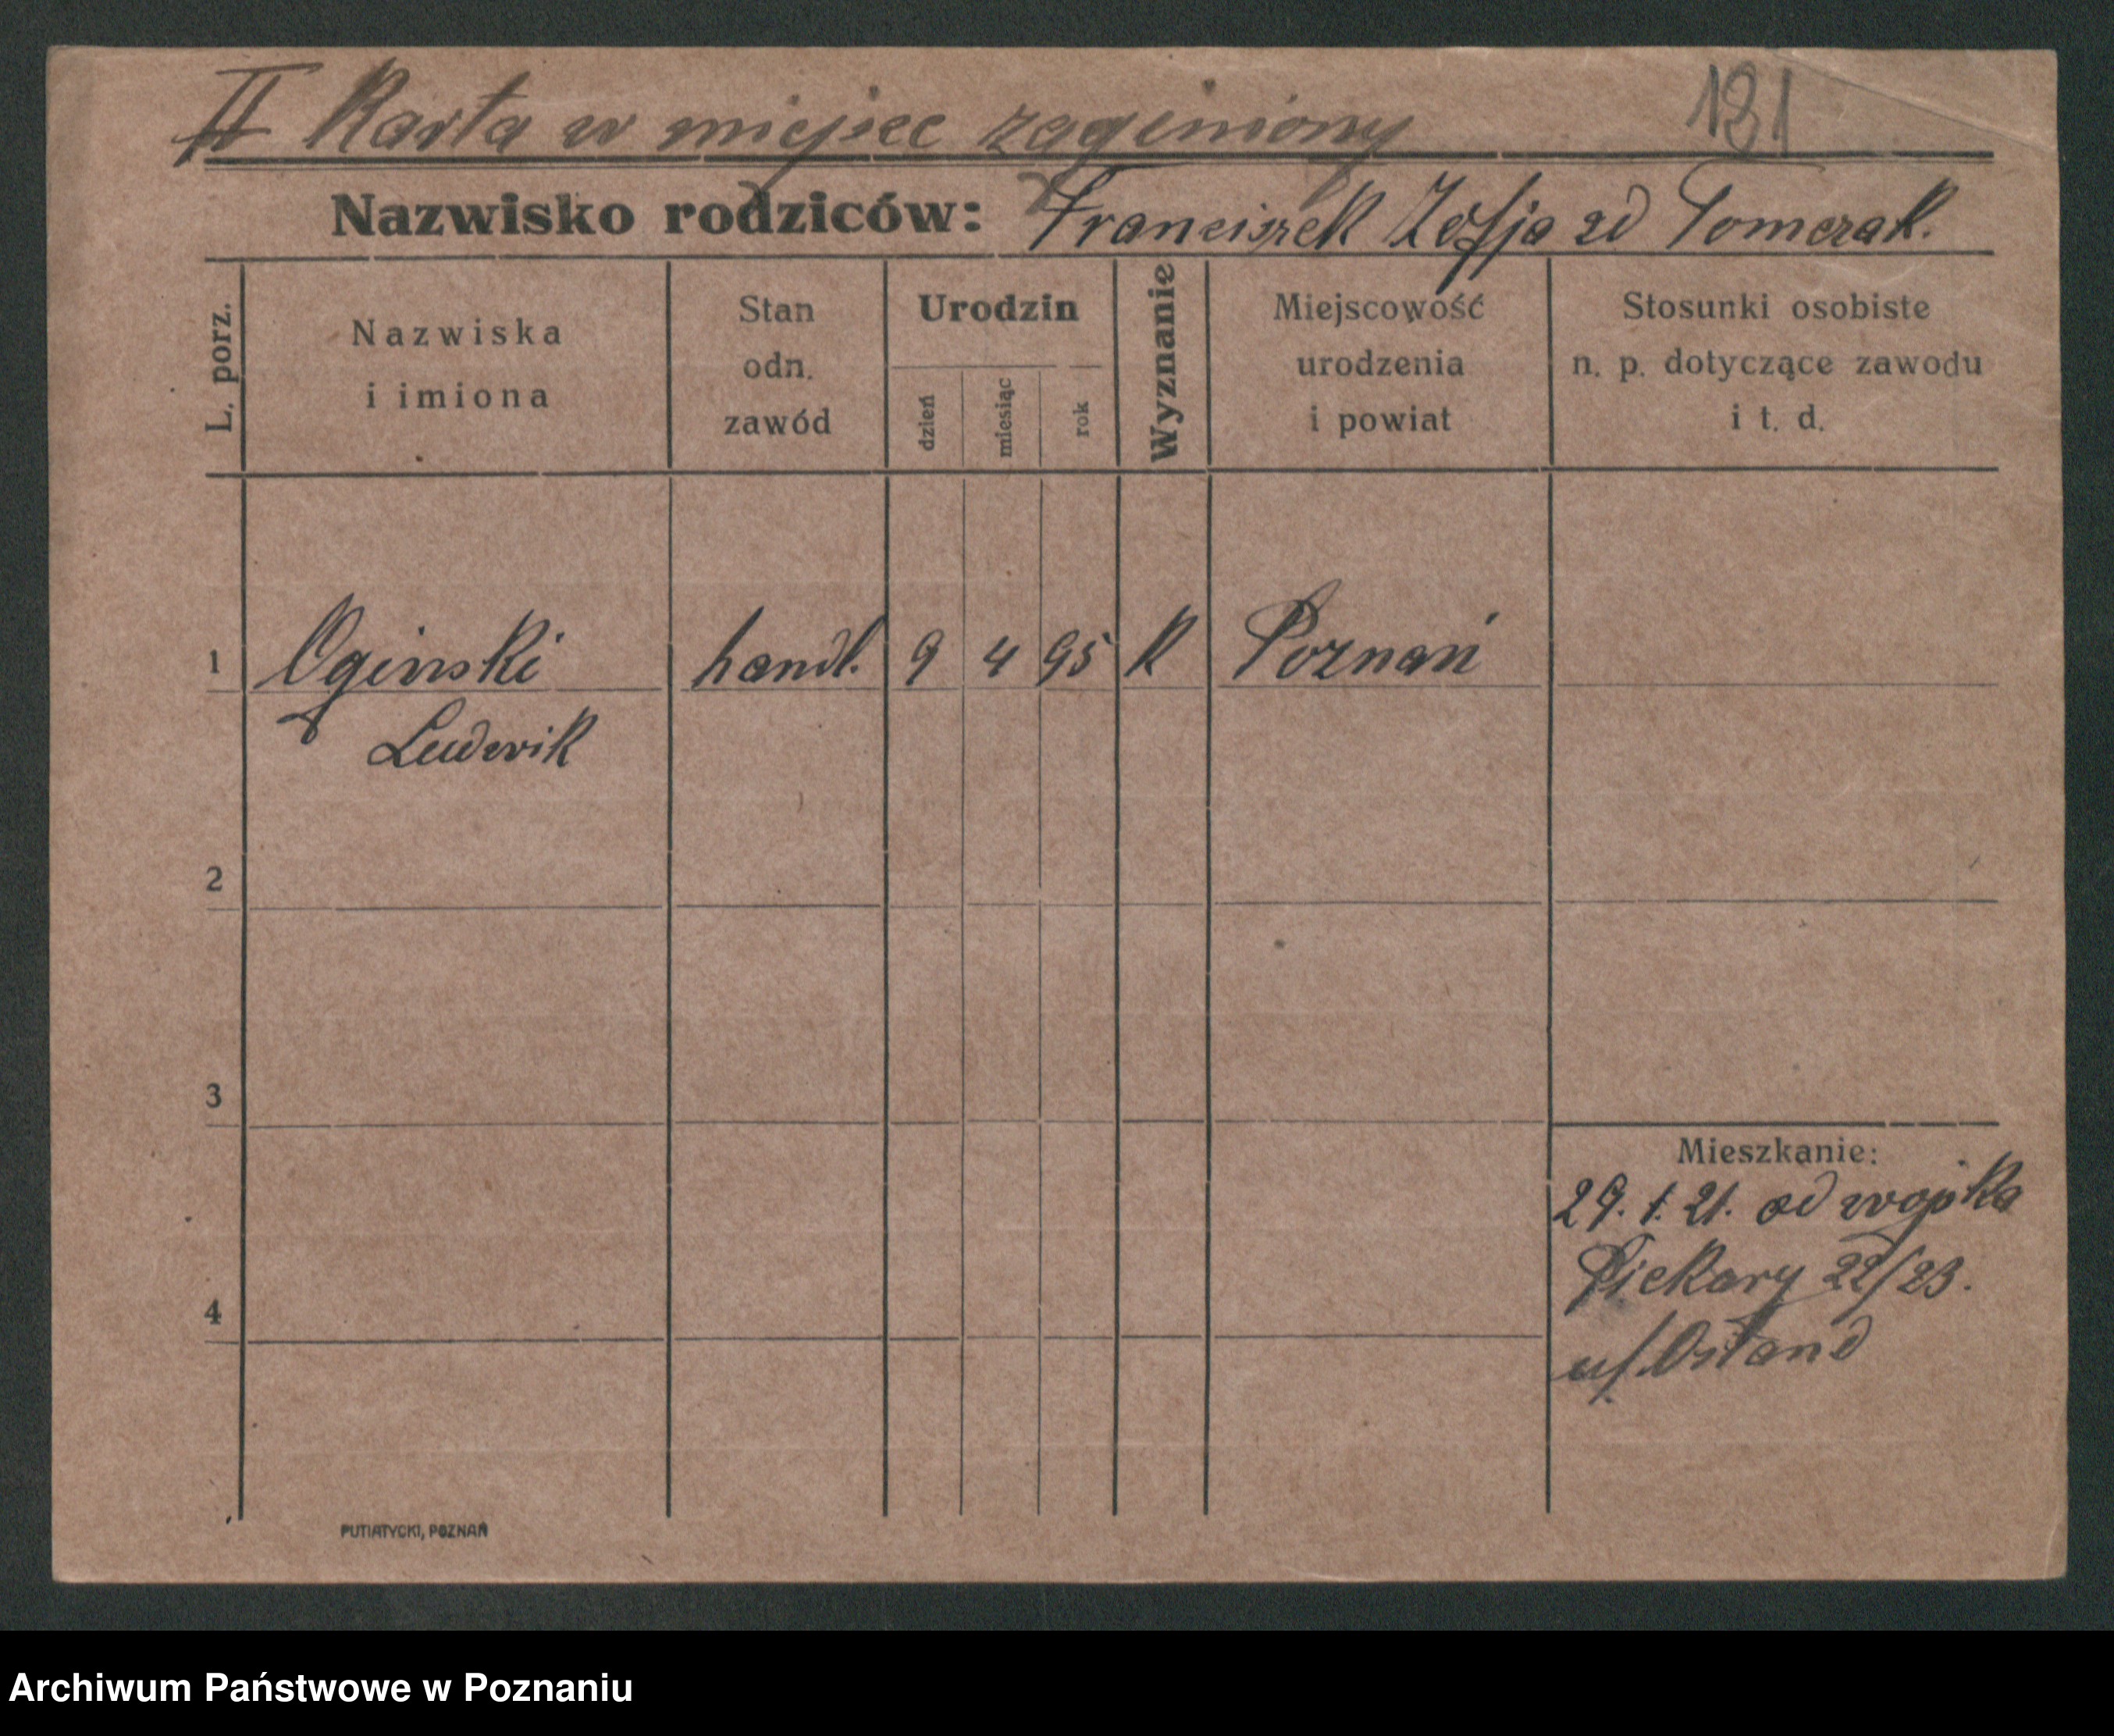 II Karta w miejsce zaginiony
131
Nazwisko rodziców: Franciszek Zofja zd Tomczak.
L. porz.
Nazwiska
i imiona
Stan
odn.
zawód
Urodzin
dzień
miesiąc
rok
Wyznanie
Miejscowość
urodzenia
i powiat
Stosunki osobiste
n. p. dotyczące zawodu
i t. d.
1 Oginski handl. 9 4 95 K Poznań
Ludwik
2
3
Mieszkanie:
29. 1. 21. od wojska
Piekary 22/23.
4
PUTIATYCKI, POZNAŃ
Archiwum Państwowe w Poznaniu